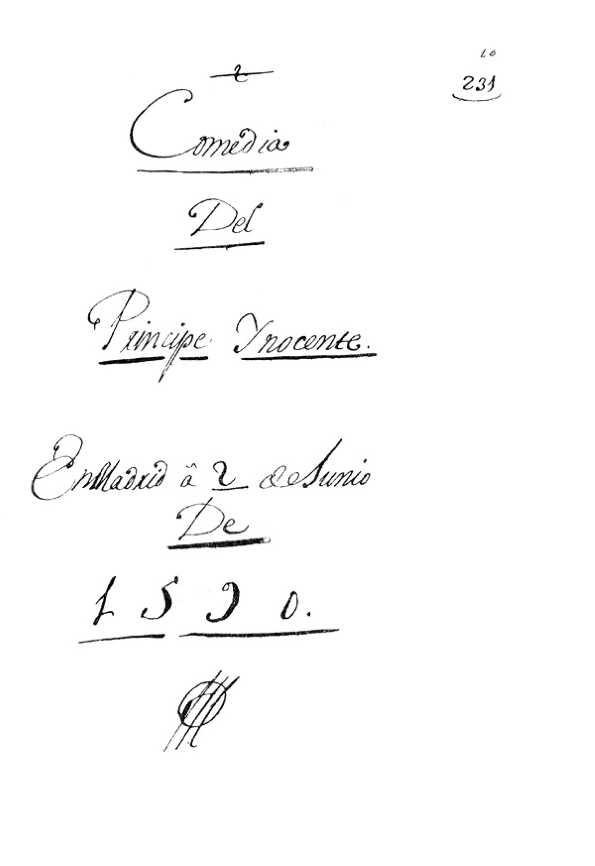 20
2
231
Comedia
Del
Principe Ynocente.
En Madrid â 2 de Junio
De
1590.